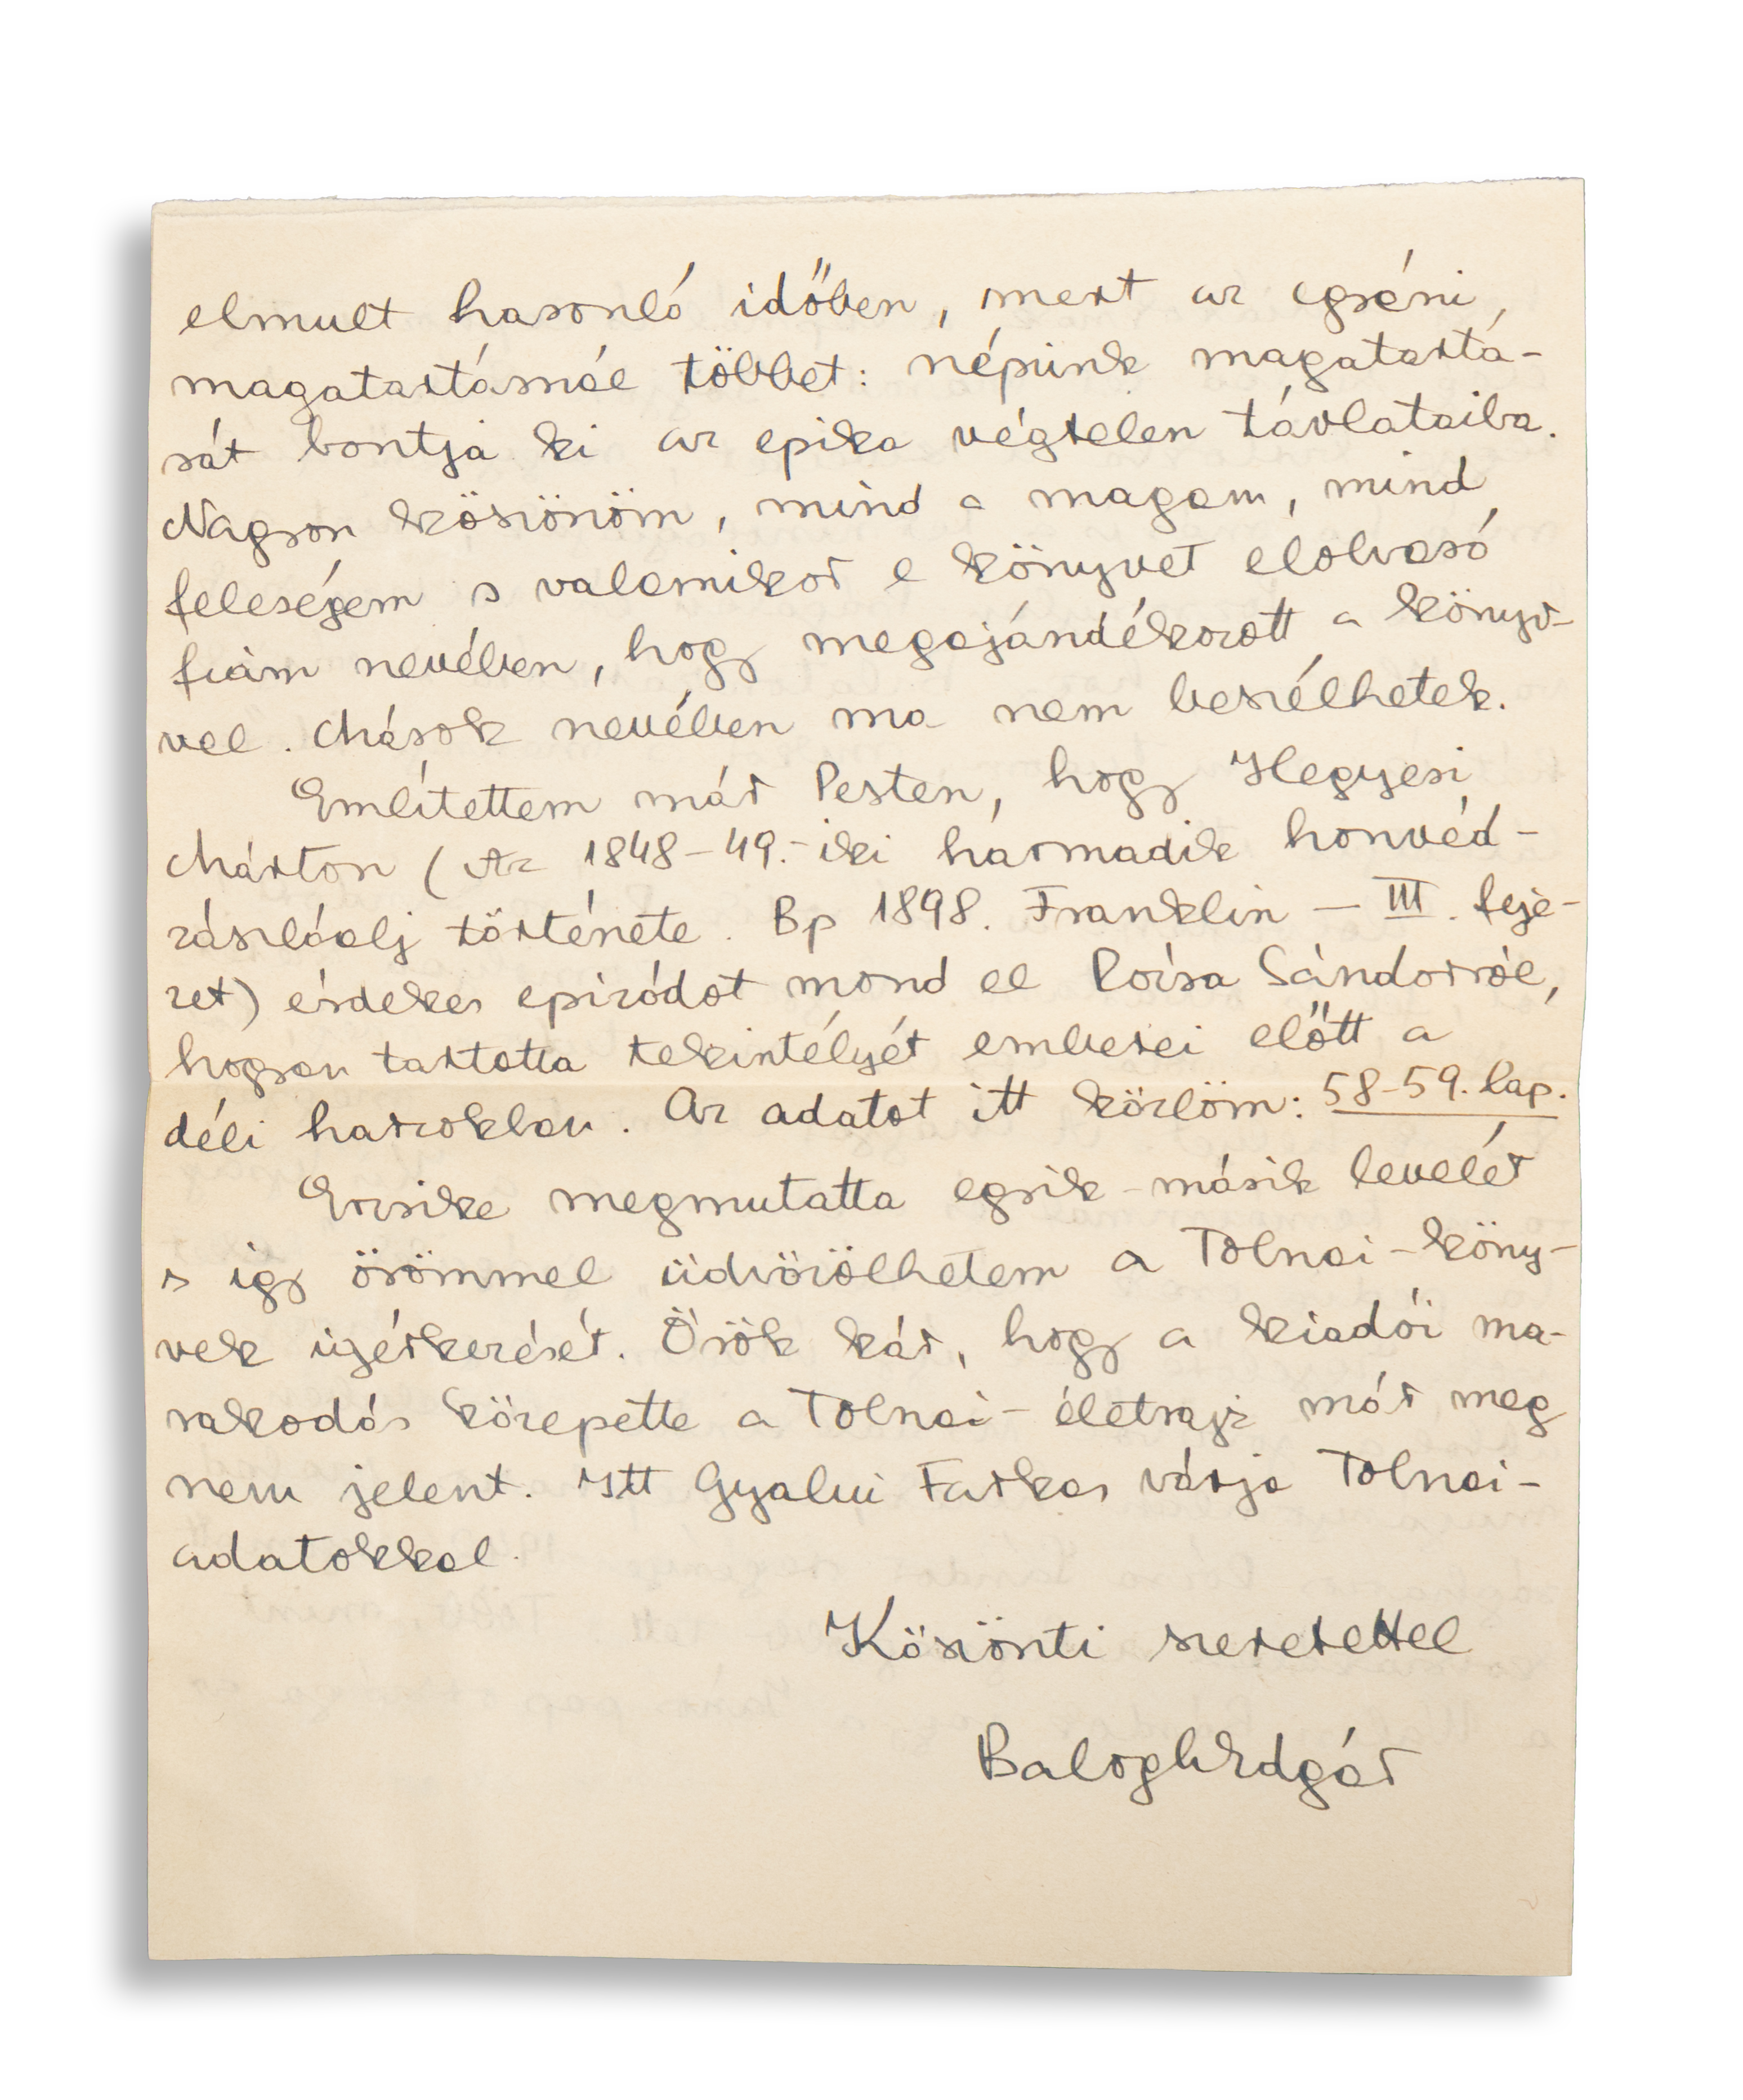 elmult hasonló időben, mert az egyéni
magatartásnál többet: népünk magatartá-
sát bontja ki az epika végtelen távlataiba.
Nagyon köszönöm, mind a magam, mind
feleségem s valamikor e könyvet elolvasó
fiam nevében, hogy megajándékozott a könyv-
vel. Mások nevében ma nem beszélhetek.
Említettem már Pesten, hogy Hegyesi
Márton (Az 1848-49.-iki harmadik honvéd-
zászlóalj története. Bp 1898. Franklin — III. feje-
zet) érdekes epizódot mond el Rózsa Sándorról,
hogyan tartotta tekintélyét emberei előtt a
déli harcokban. Az adatot itt közlöm: 58-59. lap.
Erzsike megmutatta egyik-másik levelét
s igy örömmel üdvözölhetem a Tolnai-köny-
vek igérkezését. Örök kár, hogy a kiadói ma-
rakodás közepette a Tolnai-életrajz már meg
nem jelent. Itt Gyalui Farkas várja Tolnai-
adatokkal.
Köszönti szeretettel
Balogh Edgár